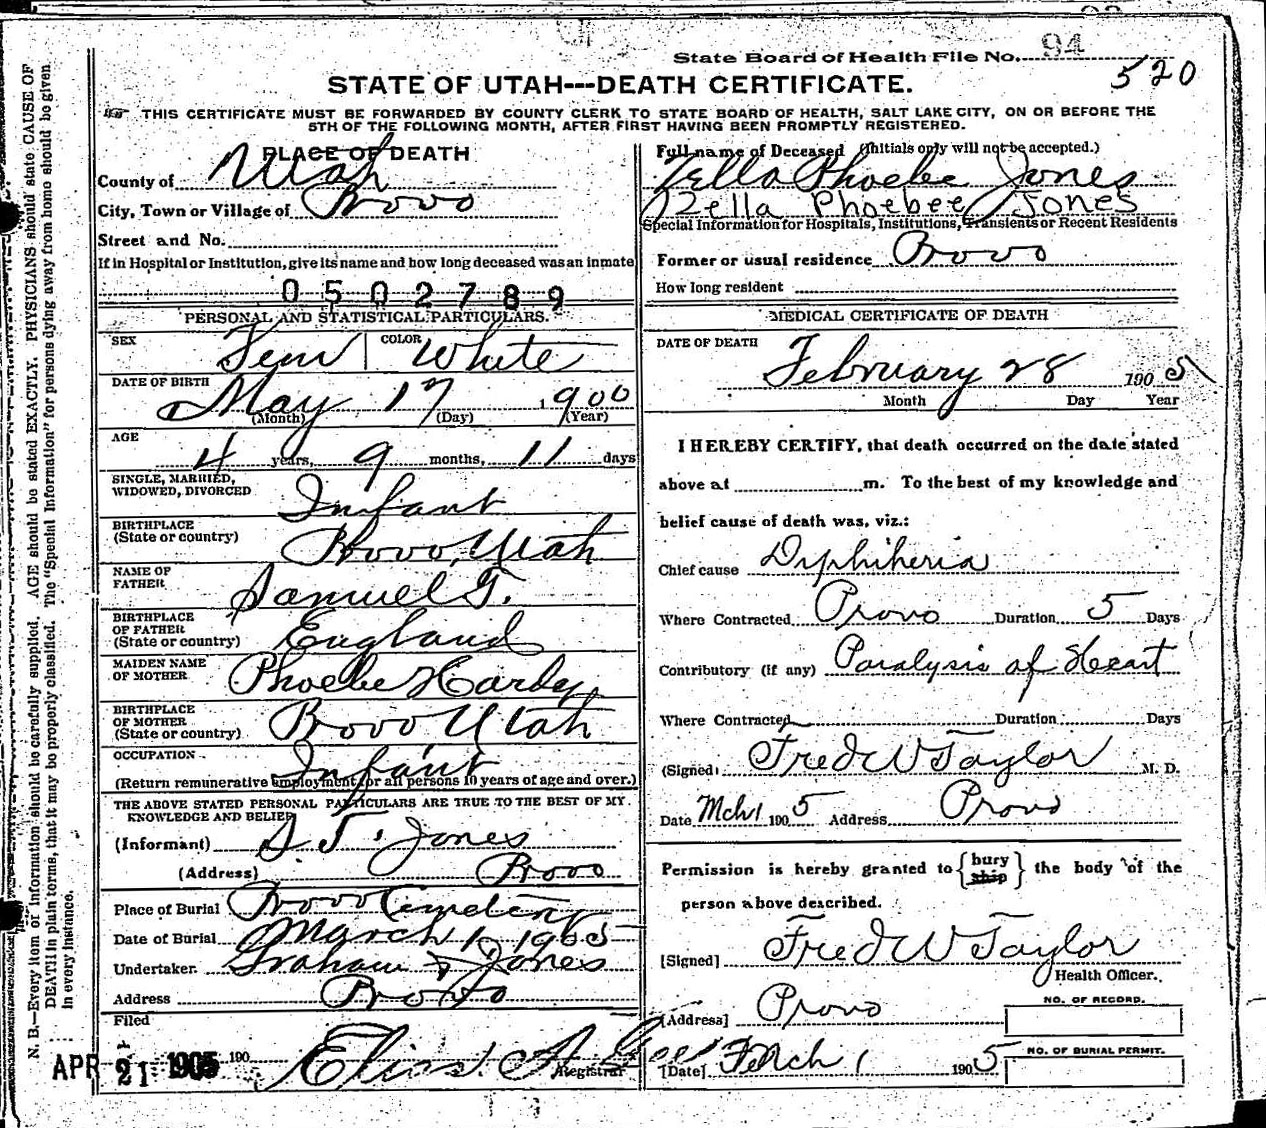 State Board of Health File No. 94
520
STATE OF UTAH---DEATH CERTIFICATE.
THIS CERTIFICATE MUST BE FORWARDED BY COUNTY CLERK TO STATE BOARD OF HEALTH, SALT LAKE CITY, ON OR BEFORE THE
5TH OF THE FOLLOWING MONTH, AFTER FIRST HAVING BEEN PROMPTLY REGISTERED.
N. B.—Every item of information should be carefully supplied. AGE should be stated EXACTLY. PHYSICIANS should state CAUSE OF
DEATH in plain terms, that it may be properly classified. The "Special Information" for persons dying away from home should be given
in every instance.
PLACE OF DEATH
County of Utah
City, Town or Village of Provo
Street and No.
If in Hospital or Institution, give its name and how long deceased was an inmate
0502789
PERSONAL AND STATISTICAL PARTICULARS.
SEX Fem COLOR White
DATE OF BIRTH
May 17 1900
(Month) (Day) (Year)
AGE
4 years, 9 months, 11 days
SINGLE, MARRIED,
WIDOWED, DIVORCED Infant
BIRTHPLACE
(State or country) Provo, Utah
NAME OF
FATHER Samuel T.
BIRTHPLACE
OF FATHER
(State or country) England
MAIDEN NAME
OF MOTHER Phoebe Hardy
BIRTHPLACE
OF MOTHER
(State or country) Provo Utah
OCCUPATION Infant
(Return remunerative employment for all persons 10 years of age and over.)
THE ABOVE STATED PERSONAL PARTICULARS ARE TRUE TO THE BEST OF MY
KNOWLEDGE AND BELIEF
(Informant) S. T. Jones
(Address) Provo
Place of Burial Provo Cemetery
Date of Burial March 1, 1905
Undertaker. Graham & Jones
Address Provo
Filed
APR 21 1905 190 Elias A. Gee
Registrar
Full name of Deceased (Initials only will not be accepted.)
Zella Phoebe Jones
Zella Phoebee Jones
Special Information for Hospitals, Institutions, Transients or Recent Residents
Former or usual residence Provo
How long resident
MEDICAL CERTIFICATE OF DEATH
DATE OF DEATH
February 28 1905
Month Day Year
I HEREBY CERTIFY, that death occurred on the date stated
above at m. To the best of my knowledge and
belief cause of death was, viz.:
Chief cause Diphtheria
Where Contracted Provo Duration 5 Days
Contributory (if any) Paralysis of Heart
Where Contracted Duration Days
(Signed) Fred W Taylor M. D.
Date Mch 1 1905 Address Provo
Permission is hereby granted to { bury ship } the body of the
person above described.
[Signed] Fred W Taylor
Health Officer.
[Address] Provo
NO. OF RECORD.
[Date] Mch 1 1905
NO. OF BURIAL PERMIT.